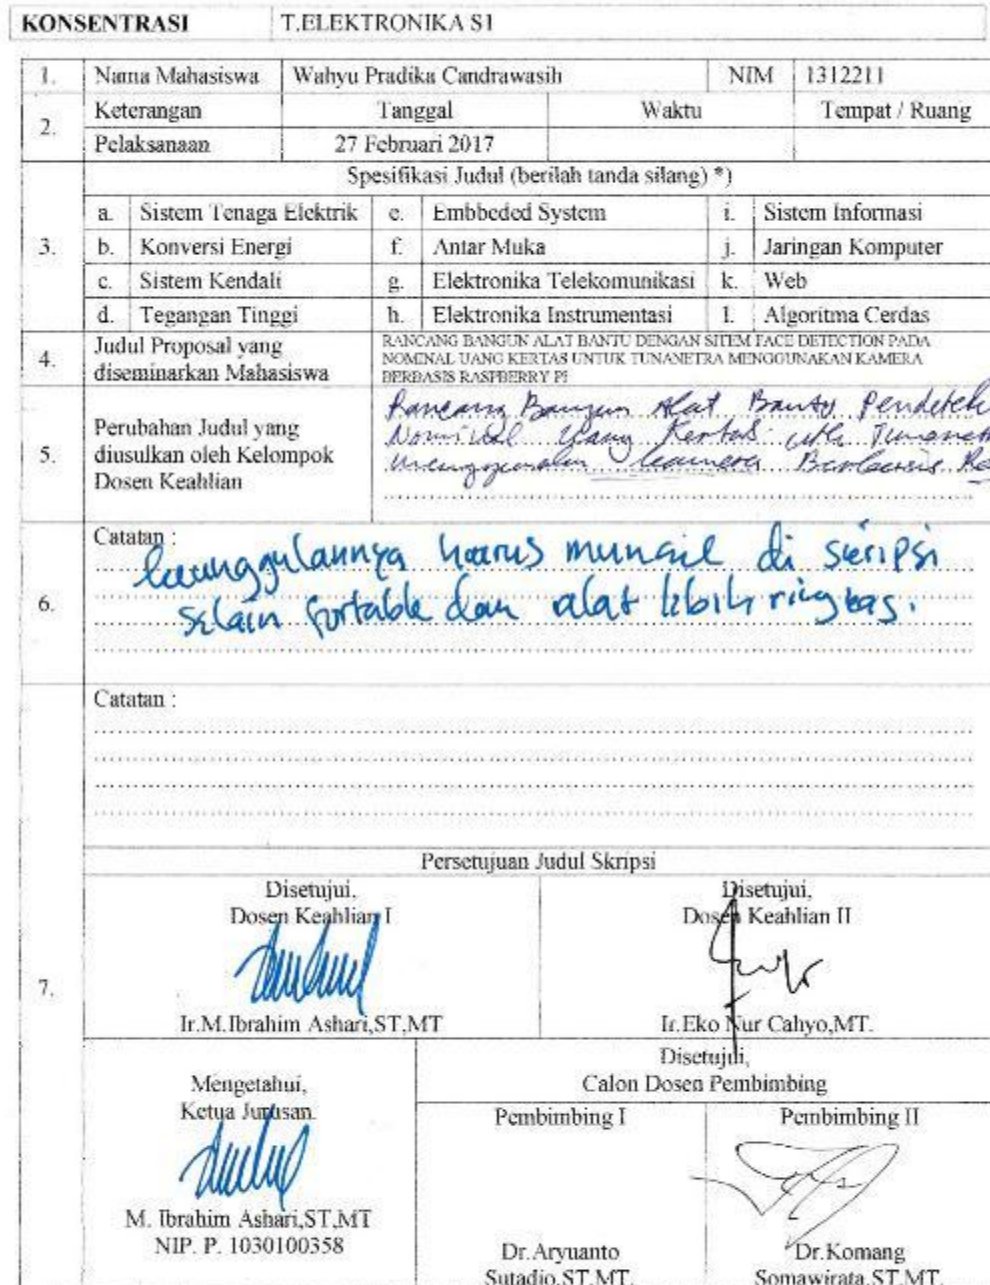 KONSENTRASI T.ELEKTRONIKA S1
1. Nama Mahasiswa Wahyu Pradika Candrawasih NIM 1312211
2. Keterangan Tanggal Waktu Tempat / Ruang
Pelaksanaan 27 Februari 2017
3. Spesifikasi Judul (berilah tanda silang) *)
a. Sistem Tenaga Elektrik e. Embbeded System i. Sistem Informasi
b. Konversi Energi f. Antar Muka j. Jaringan Komputer
c. Sistem Kendali g. Elektronika Telekomunikasi k. Web
d. Tegangan Tinggi h. Elektronika Instrumentasi l. Algoritma Cerdas
4. Judul Proposal yang
diseminarkan Mahasiswa
RANCANG BANGUN ALAT BANTU DENGAN SITEM FACE DETECTION PADA
NOMINAL UANG KERTAS UNTUK TUNANETRA MENGGUNAKAN KAMERA
BERBASIS RASPBERRY PI
5. Perubahan Judul yang
diusulkan oleh Kelompok
Dosen Keahlian
Rancang Bangun Alat Bantu Pendetek
Nominal Uang Kertas utk Tunanet
menggunakan kamera Berbasis Ra
6. Catatan :
keunggulannya harus muncul di skripsi
selain portable dan alat lebih ringkas.
Catatan :
7. Persetujuan Judul Skripsi
Disetujui,
Dosen Keahlian I
Ir.M.Ibrahim Ashari,ST,MT
Disetujui,
Dosen Keahlian II
Ir.Eko Nur Cahyo,MT.
Mengetahui,
Ketua Jurusan.
M. Ibrahim Ashari,ST,MT
NIP. P. 1030100358
Disetujui,
Calon Dosen Pembimbing
Pembimbing I
Dr.Aryuanto
Sutadjo,ST,MT.
Pembimbing II
Dr.Komang
Somawirata,ST,MT.